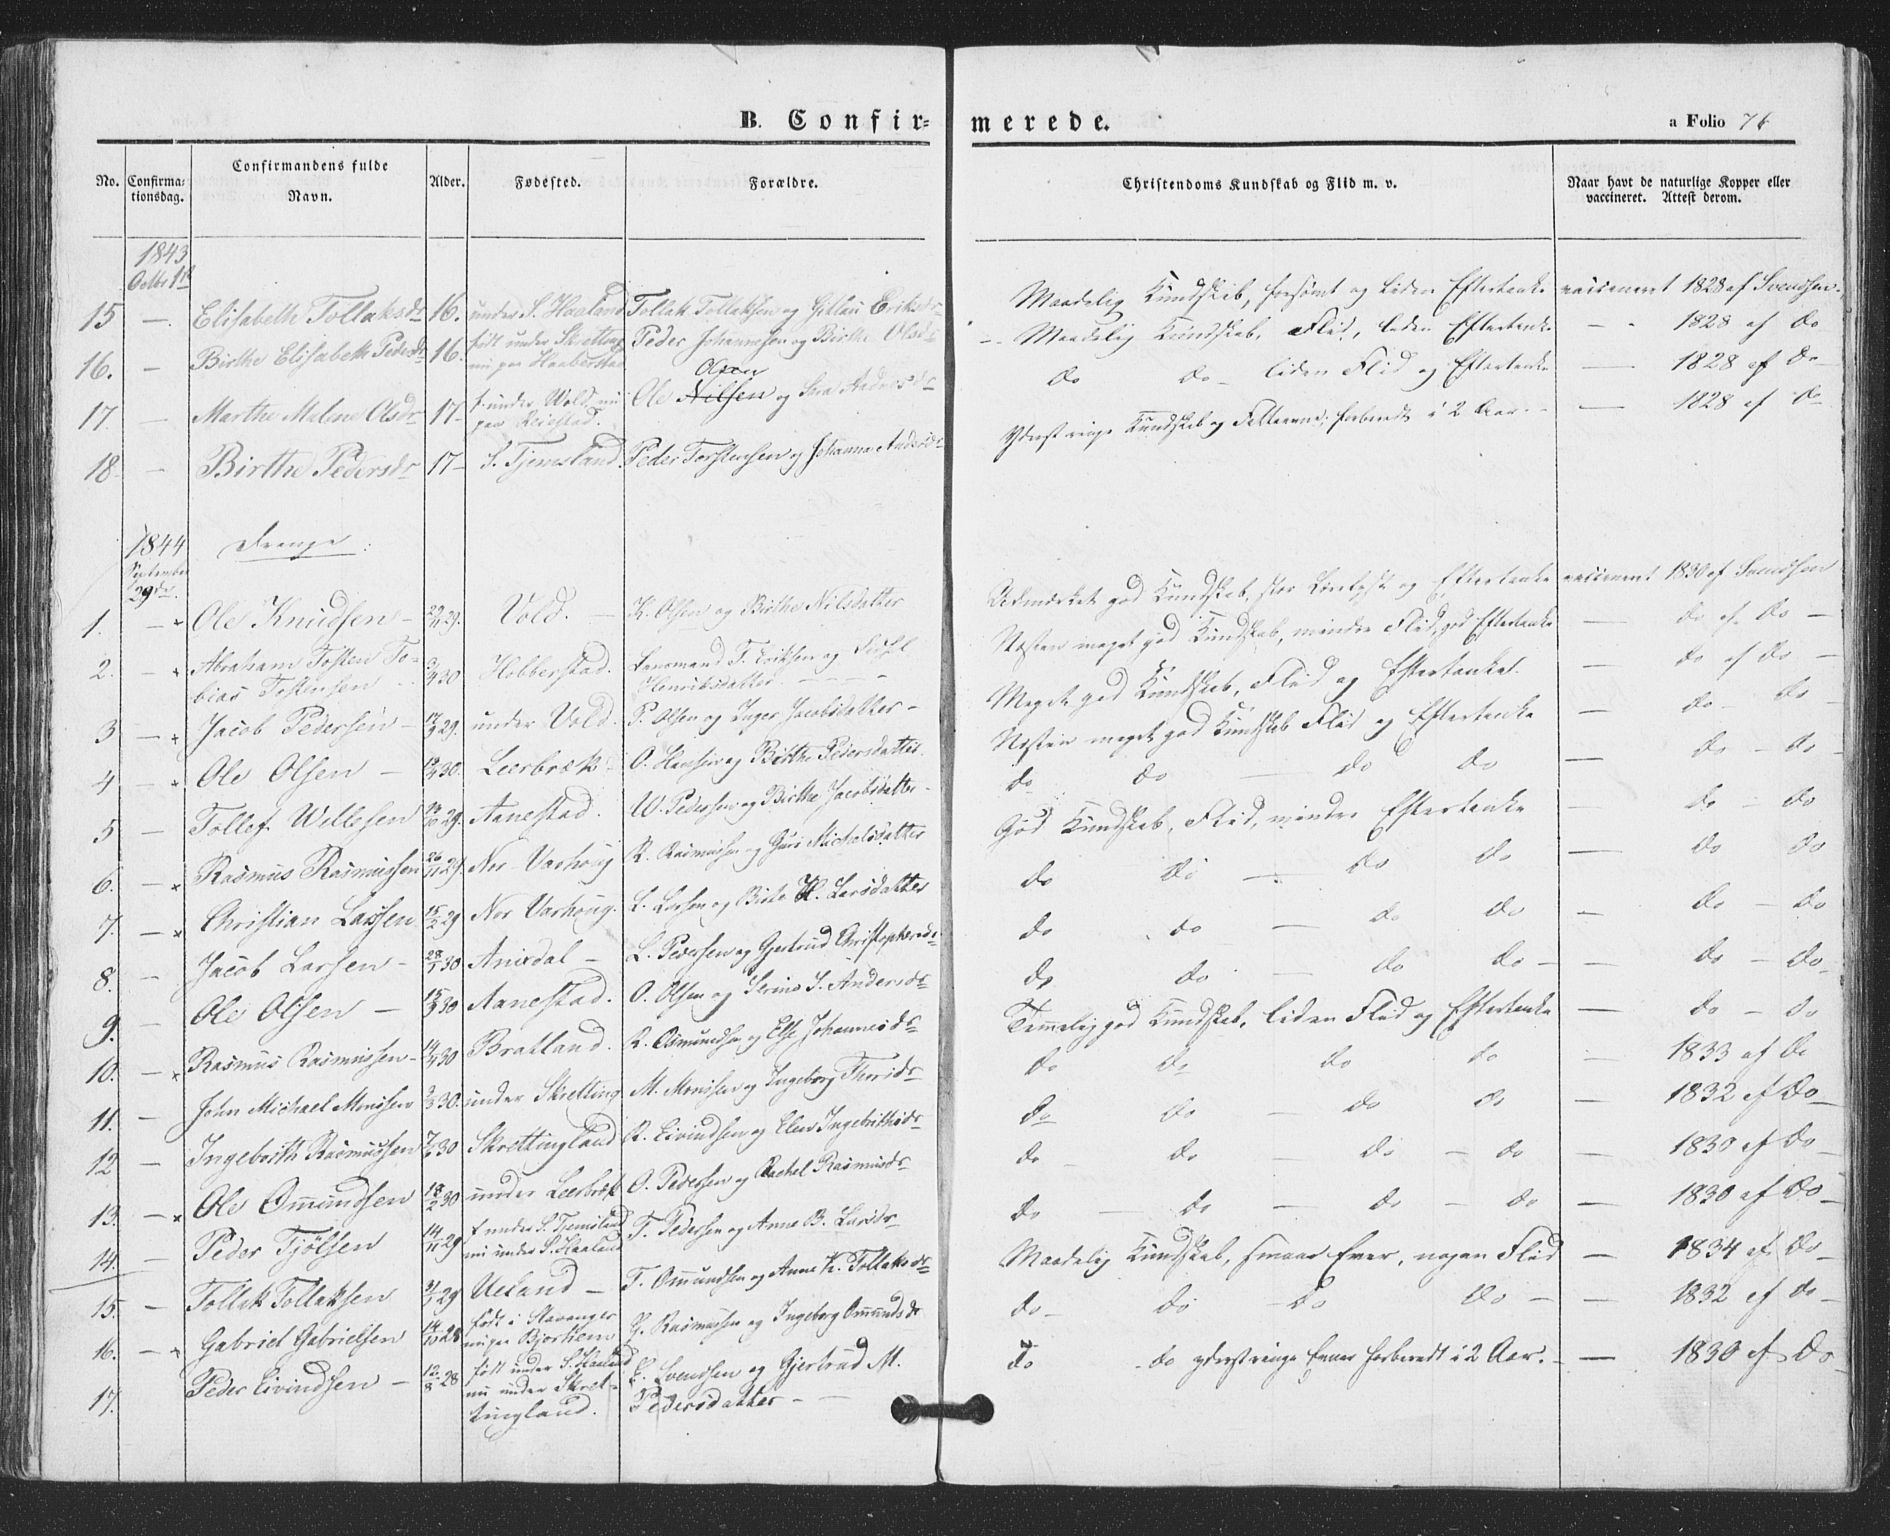 B. Confir-
merede.
a Folio 76
No.
Confirma-
tionsdag.
Confirmandens fulde
Navn.
Alder.
Fødested.
Forældre.
Christendoms Kundskab og Flid m. v.
Naar havt de naturlige Kopper eller
vaccineret. Attest derom.
1843
Octbr 1ste
15 — Elisabeth Tollaksdr 16. under S. Haaland Tollak Tollaksen og Eriksdr Maadelig Kundskab, forsømt og liden Eftertanke vaccineret 1828 af Svendsen.
16. — Birthe Elisabeth Pedersdr 16. født under Skretting Peder Johannesen og Birthe Olsdr Maadelig Kundskab, Flid, liden Eftertanke — 1828 af do
nu paa Haaberstad
Olsen
17 — Marthe Malene Olsdr 17 - f. under Vold nu Ole Nilsen og Andersdr do do liden Flid og Eftertanke — 1828 af do
paa Reiestad.
18 — Birthe Pedersdr 17 — S. Tjemsland. Peder Torstensen og Johanna Andersdr Yderst ringe Kundskab og forberedt i 2 Aar. — 1828 af do
1844 Drenge:
September
29de.
1. — Ole Knudsen — 29. Vold. — K. Olsen og Birthe Nilsdatter Udmærket god Kundskab, stor og Eftertanke vaccineret 1830 af Svendsen
2. — Abraham Tosten To- 3/4 30 Hobberstad. Lensmand T. Eriksen og Næsten meget god Kundskab, mindre Flid, god Eftertanke — do af do —
bias Tostensen Henriksdatter
3 — Jacob Pedersen — 29. under Vold. P. Olsen og Inger Jacobsdatter — Meget god Kundskab, Flid og Eftertanke. — do af do —
4 — Ole Olsen — 30. Leerbrek O. Hansen og Birthe Pedersdatter. Næsten meget god Kundskab Flid og Eftertanke — do — do
5 — Tollef Willesen 29. Aanestad. W. Pedersen og Birthe Jacobsdatter — do do — do do — do — do
6. — Rasmus Rasmussen 26/11 29. Nor Varhoug R. Rasmussen og Guri Michelsdatter God Kundskab, Flid, mindre Eftertanke — do — do
7. — Christian Larsen 15/2 29 Nor Varhoug. L. Larsen og Larsdatter do do — do do — do do
8. — Jacob Larsen — 28/1 30 Anisdal — L. Pedersen og Gjertrud Christophersdr do do — do do — do — do
9. — Ole Olsen — 15/3 30 Aanestad. O. Olsen og Serine S. Andersdr do do — do do — do — do
10. — Rasmus Rasmussen — 14/4 30 Bratland. R. Osmundsen og Else Johannesdr Temmelig god Kundskab, liden Flid og Eftertanke — do — do
11. — John Michael Monsen 2/3 30. under Skretting M. Monsen og Ingeborg do do do do — 1833 af do
12 — Ingebrith Rasmussen 30 Skrettingland R. Eivindsen og Elen Ingebrithsdr do do — do do — 1832 af do
13. — Ole Omundsen 18/2 30 under Leerbrek O. Pedersen og Rachel Rasmusdr do — do — do — do — 1830 af do
14. — Peder Tjølsen 14/11 29 f. under S. Tjemsland T. Pedersen og Anne B. Larsdr do — do — do — do — 1830 af do
nu under S. Haaland
15. — Tollak Tollaksen 29 Ueland — T. Omundsen og Anne K. Tollaksdr Maadelig Kundskab, smaae Evner, nogen Flid — 1834 af do
16. — Gabriel Gabrielsen 28 født i Stavanger G. Rasmussen og Ingeborg Omundsdr do — do — do do — 1832 af do
nu paa Bjorkem
17. Peder Eivindsen — 12/8 28 født under S. Haaland E. Svendsen og Gjertrud M. do do yderst ringe Evner forberedt i 2 Aar. — 1830 af do
nu under Skret- Pedersdatter
tingland.